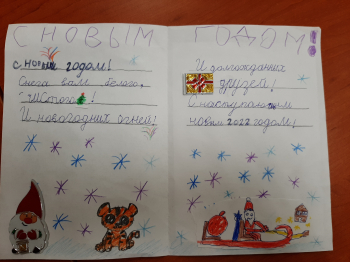 С НОВЫМ ГОДОМ
С новым годом!
Снега вам белого,
И новогодних огней!
И долгожданных
друзей!
С наступающим
новым 2022 годом!